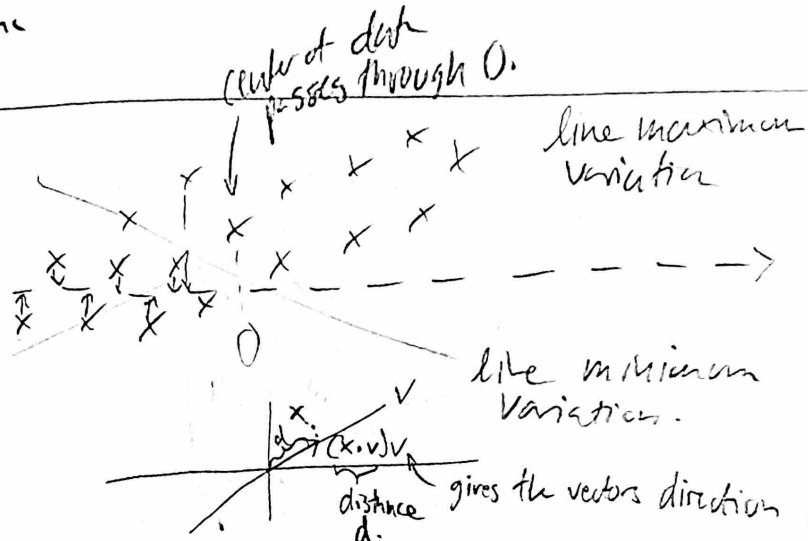 center of data
passes through 0.
line maximum
variation
0
line minimum
variation.
x
v
d
(x·v)v
distance
d.
gives the vectors direction